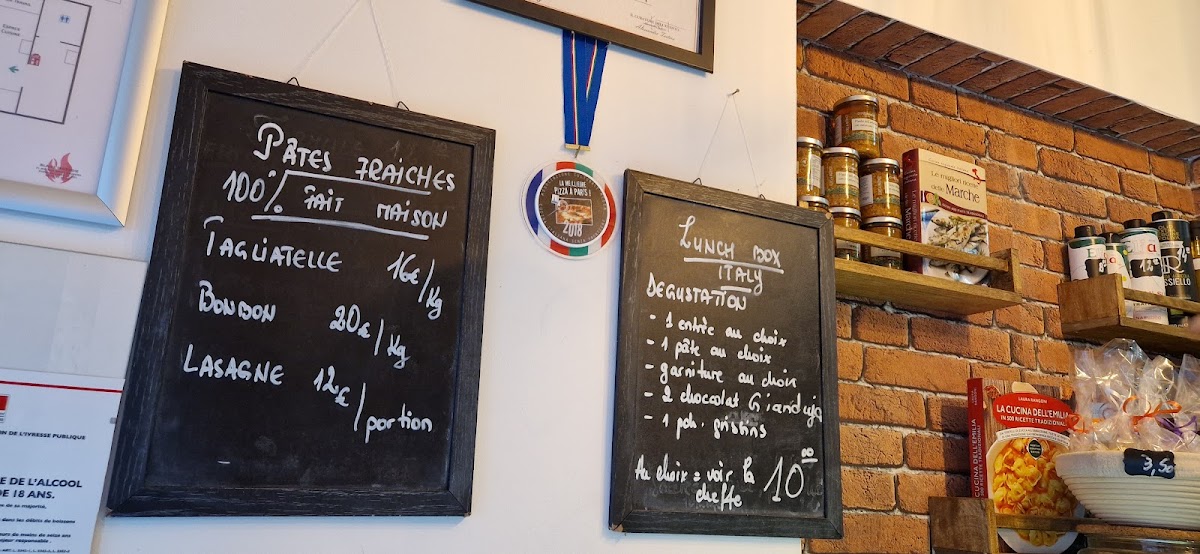 PÂTES FRAICHES
100% FAIT MAISON
TAGLIATELLE 16€/Kg
BONBON 20€/Kg
LASAGNE 12€/portion
LA MEILLEURE
PIZZA À PARIS !
2018
LUNCH BOX
ITALY
DEGUSTATION
- 1 entrée au choix
- 1 pâte au choix
- garniture au choix
- 2 chocolat Gianduja
- 1 poh. grissins
Au choix = voir la
cheffe
10⁰⁰
Le migliori ricette
della
Marche
LAURA RANGONI
LA CUCINA DELL'EMILIA
IN 500 RICETTE TRADIZIONALI
LA CUCINA DELL'EMILIA
3,50
ON DE L'IVRESSE PUBLIQUE
E DE L'ALCOOL
DE 18 ANS.